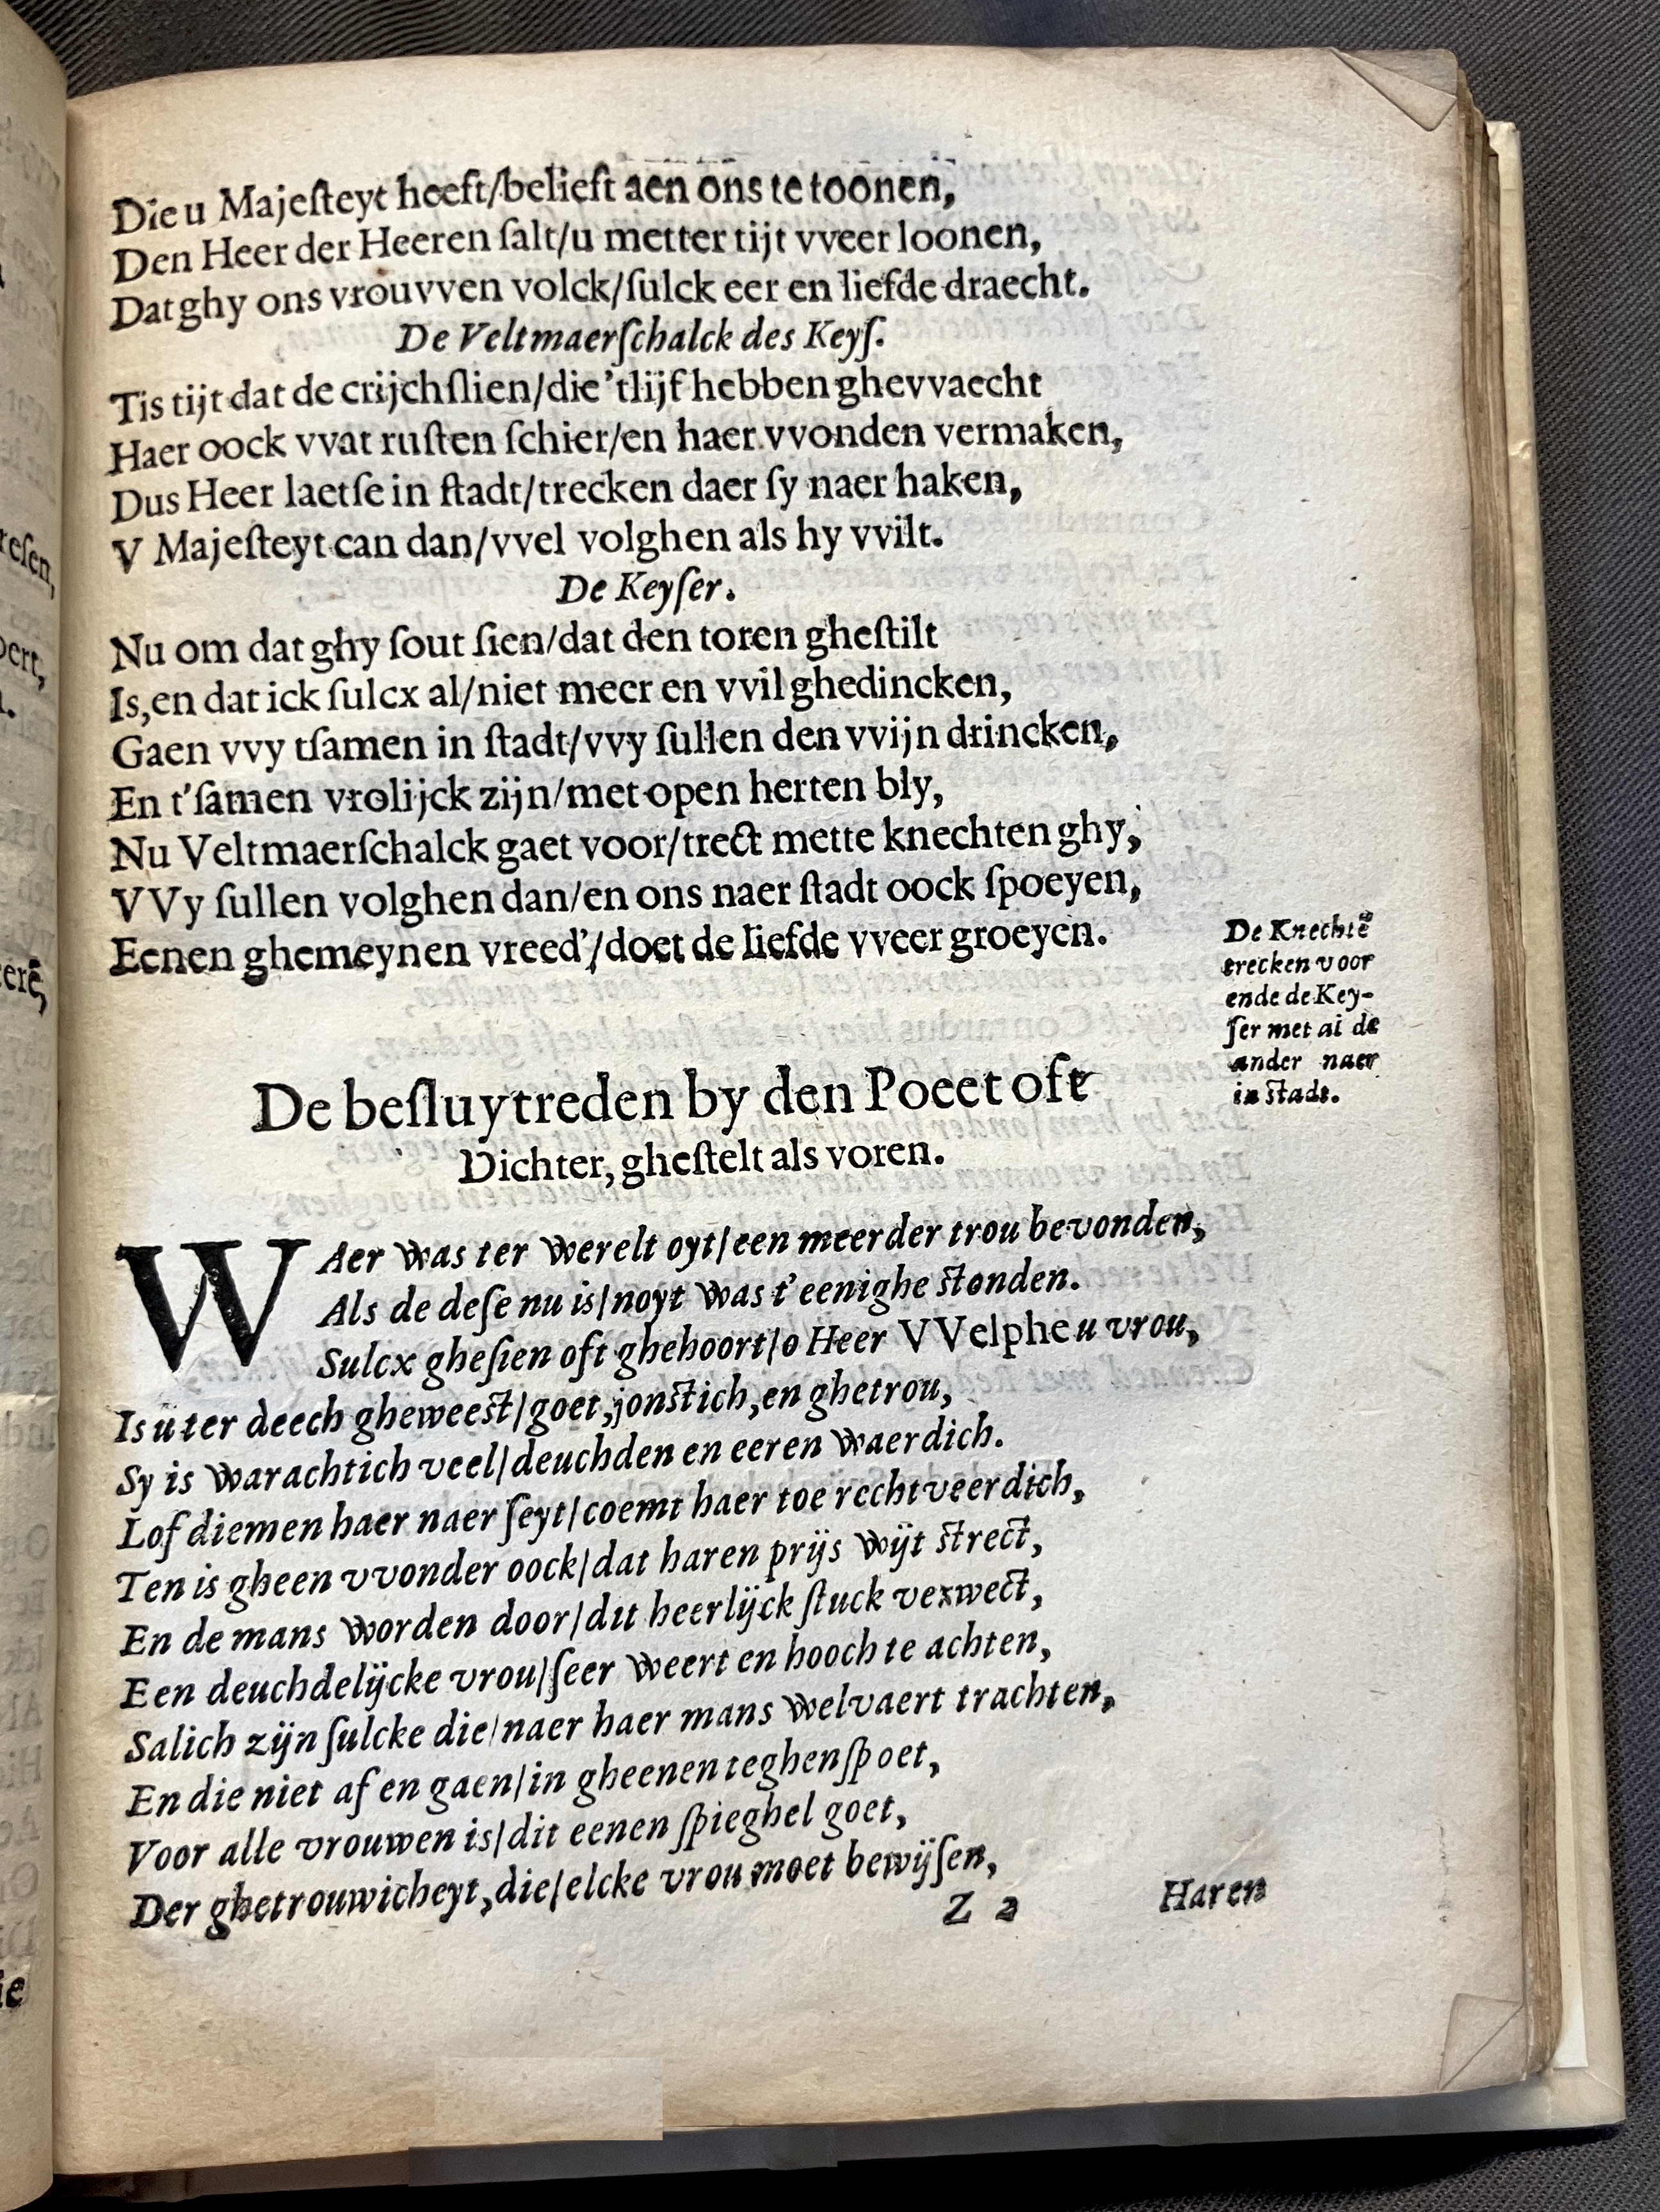 Die u Majeſteyt heeft/belieft aen ons te toonen,
Den Heer der Heeren ſalt/u metter tijt vveer loonen,
Dat ghy ons vrouvven volck/ſulck eer en liefde draecht.
De Veltmaerſchalck des Keyſ.
Tis tijt dat de crijchſlien/die 'tlijf hebben ghevvaecht
Haer oock vvat ruſten ſchier/en haer vvonden vermaken,
Dus Heer laetſe in ſtadt/trecken daer ſy naer haken,
V Majeſteyt can dan/vvel volghen als hy vvilt.
De Keyſer.
Nu om dat ghy ſout ſien/dat den toren gheſtilt
Is,en dat ick ſulcx al/niet meer en vvil ghedincken,
Gaen vvy tſamen in ſtadt/vvy ſullen den vvijn drincken,
En t'ſamen vrolijck zijn/met open herten bly,
Nu Veltmaerſchalck gaet voor/trect mette knechten ghy,
VVy ſullen volghen dan/en ons naer ſtadt oock ſpoeyen,
Eenen ghemeynen vreed'/doet de liefde vveer groeyen.
De Knechtē
trecken voor
ende de Key-
ſer met al de
ander naer
in ſtadt.
De beſluytreden by den Poeet oft
Dichter, gheſtelt als voren.
WAer was ter werelt oyt/een meerder trou bevonden,
Als de deſe nu is/noyt was t'eenighe ſtonden.
Sulcx gheſien oft ghehoort/o Heer VVelphe u vrou,
Is u ter deech gheweeſt/goet,jonſtich,en ghetrou,
Sy is warachtich veel/deuchden en eeren waerdich.
Lof diemen haer naer ſeyt/coemt haer toe rechtveerdich,
Ten is gheen vvonder oock/dat haren prijs wijt ſtrect,
En de mans worden door/dit heerlijck ſtuck verwect,
Een deuchdelijcke vrou/ſeer weert en hooch te achten,
Salich zijn ſulcke die/naer haer mans welvaert trachten,
En die niet af en gaen/in gheenen teghenſpoet,
Voor alle vrouwen is/dit eenen ſpieghel goet,
Der ghetrouwicheyt,die/elcke vrou moet bewijſen,
Z 2
Haren